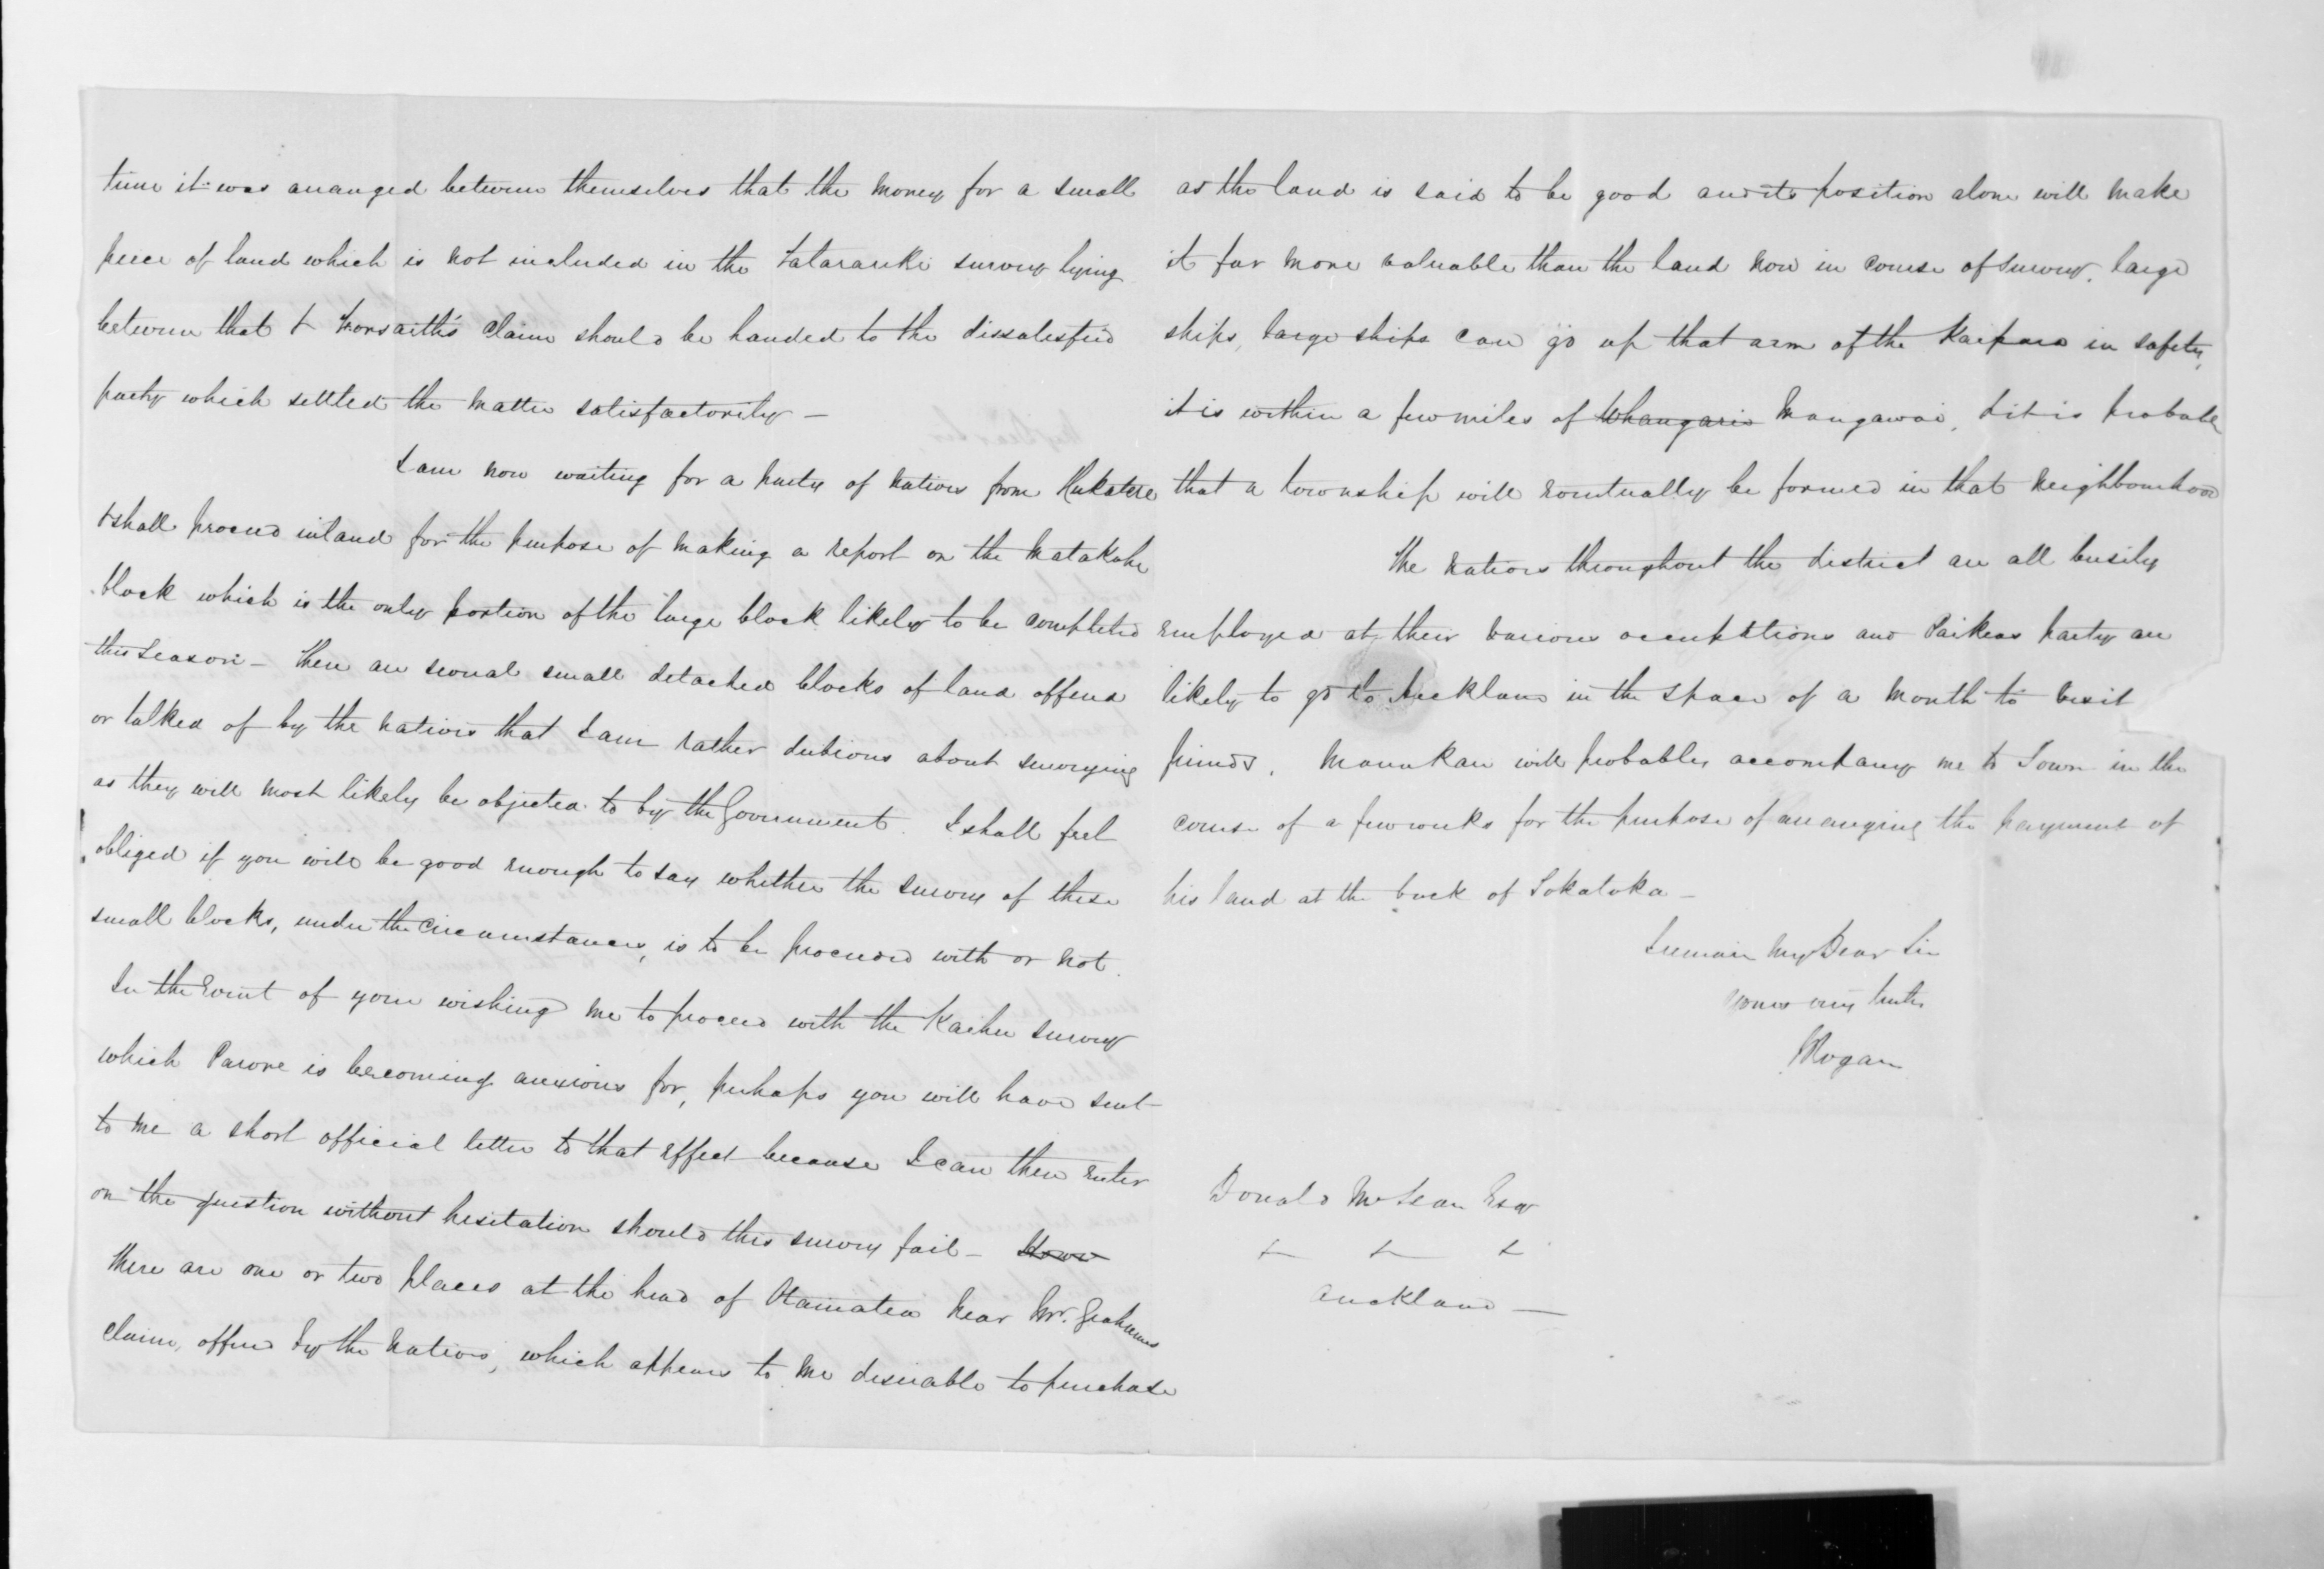 time it was arranged between themselves that the money for a small
piece of land which is not included in the Tatarariki survey lying
between that & Forsaith's claim should be handed to the dissatisfied
party which settled the matter satisfactorily —
I am now waiting for a party of natives from Hukatere
& shall proceed inland for the purpose of making a report on the Matakohe
block which is the only portion of the large block likely to be completed
this season — There are several small detached blocks of land offered
or talked of by the natives that I am rather dubious about surveying
as they will most likely be objected to by the Government. I shall feel
obliged if you will be good enough to say whether the survey of these
small blocks, under the circumstances, is to be proceeded with or not.
In the event of your wishing me to proceed with the Kaihu survey
which Parore is becoming anxious for, perhaps you will have sent
to me a short official letter to that effect because I can then enter
on the question without hesitation should this survey fail —
There are one or two places at the head of Otamatea near Mr. Grahames
claim, offered by the natives, which appears to me desirable to purchase
as the land is said to be good and its position alone will make
it far more valuable than the land now in course of survey. large
ships, large ships can go up that arm of the Kaipara in safety,
it is within a few miles of Whangarei Mangawai, & it is probable
that a township will eventually be formed in that neighbourhood
The natives throughout the district are all busily
employed at their various occupations and Paikeas party are
likely to go to Auckland in the space of a month to visit
friends. Manukau will probably accompany me to Town in the
course of a few weeks for the purpose of arranging the payment of
his land at the back of Tokatoka —
I remain My Dear Sir
yours very truly
J Rogan
Donald McLean Esq
+ + +
Auckland —